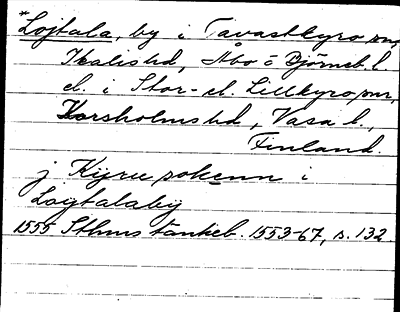 *Lojtala, by i Tavastkyro sn,
Ikalis hd, Åbo o Björneb. l.
el. i Stor- el. Lillkyro sn,
Korsholms hd, Vasa l.,
Finland.
j Kyru sokenn i
Loytalaby
1555 Sthms tänkeb. 1553-67, s. 132